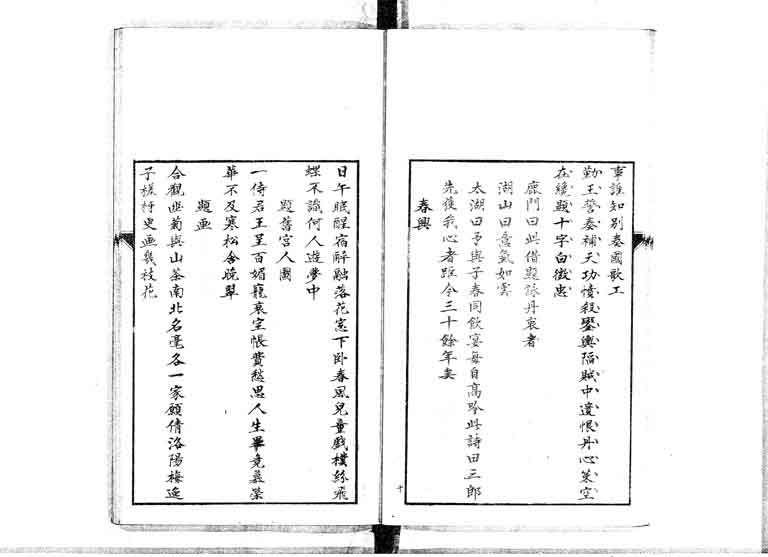 事誰知別奏國歌工
勤王誓奏補天功憤殺鑾輿陷賊中遺恨丹心策空
在纔題十字白徵忠
鹿門曰此借題詠丹衷者
湖山曰意氣如雲
太湖曰予與子春同飲宴每自高吟此詩曰三郎
先獲我心者距今三十餘年矣
春興
十
日午眠醒宿醉融落花窓下臥春風兒童戲撲紛飛
蝶不識何人遊夢中
題舊宮人圖
一侍君王呈百媚寵衰空帳費愁思人生畢竟美榮
華不及寒松含晚翠
題画
合觀幽菊與山茶南北名毫各一家願倩洛陽梅逸
子槎枒更画幾枝花